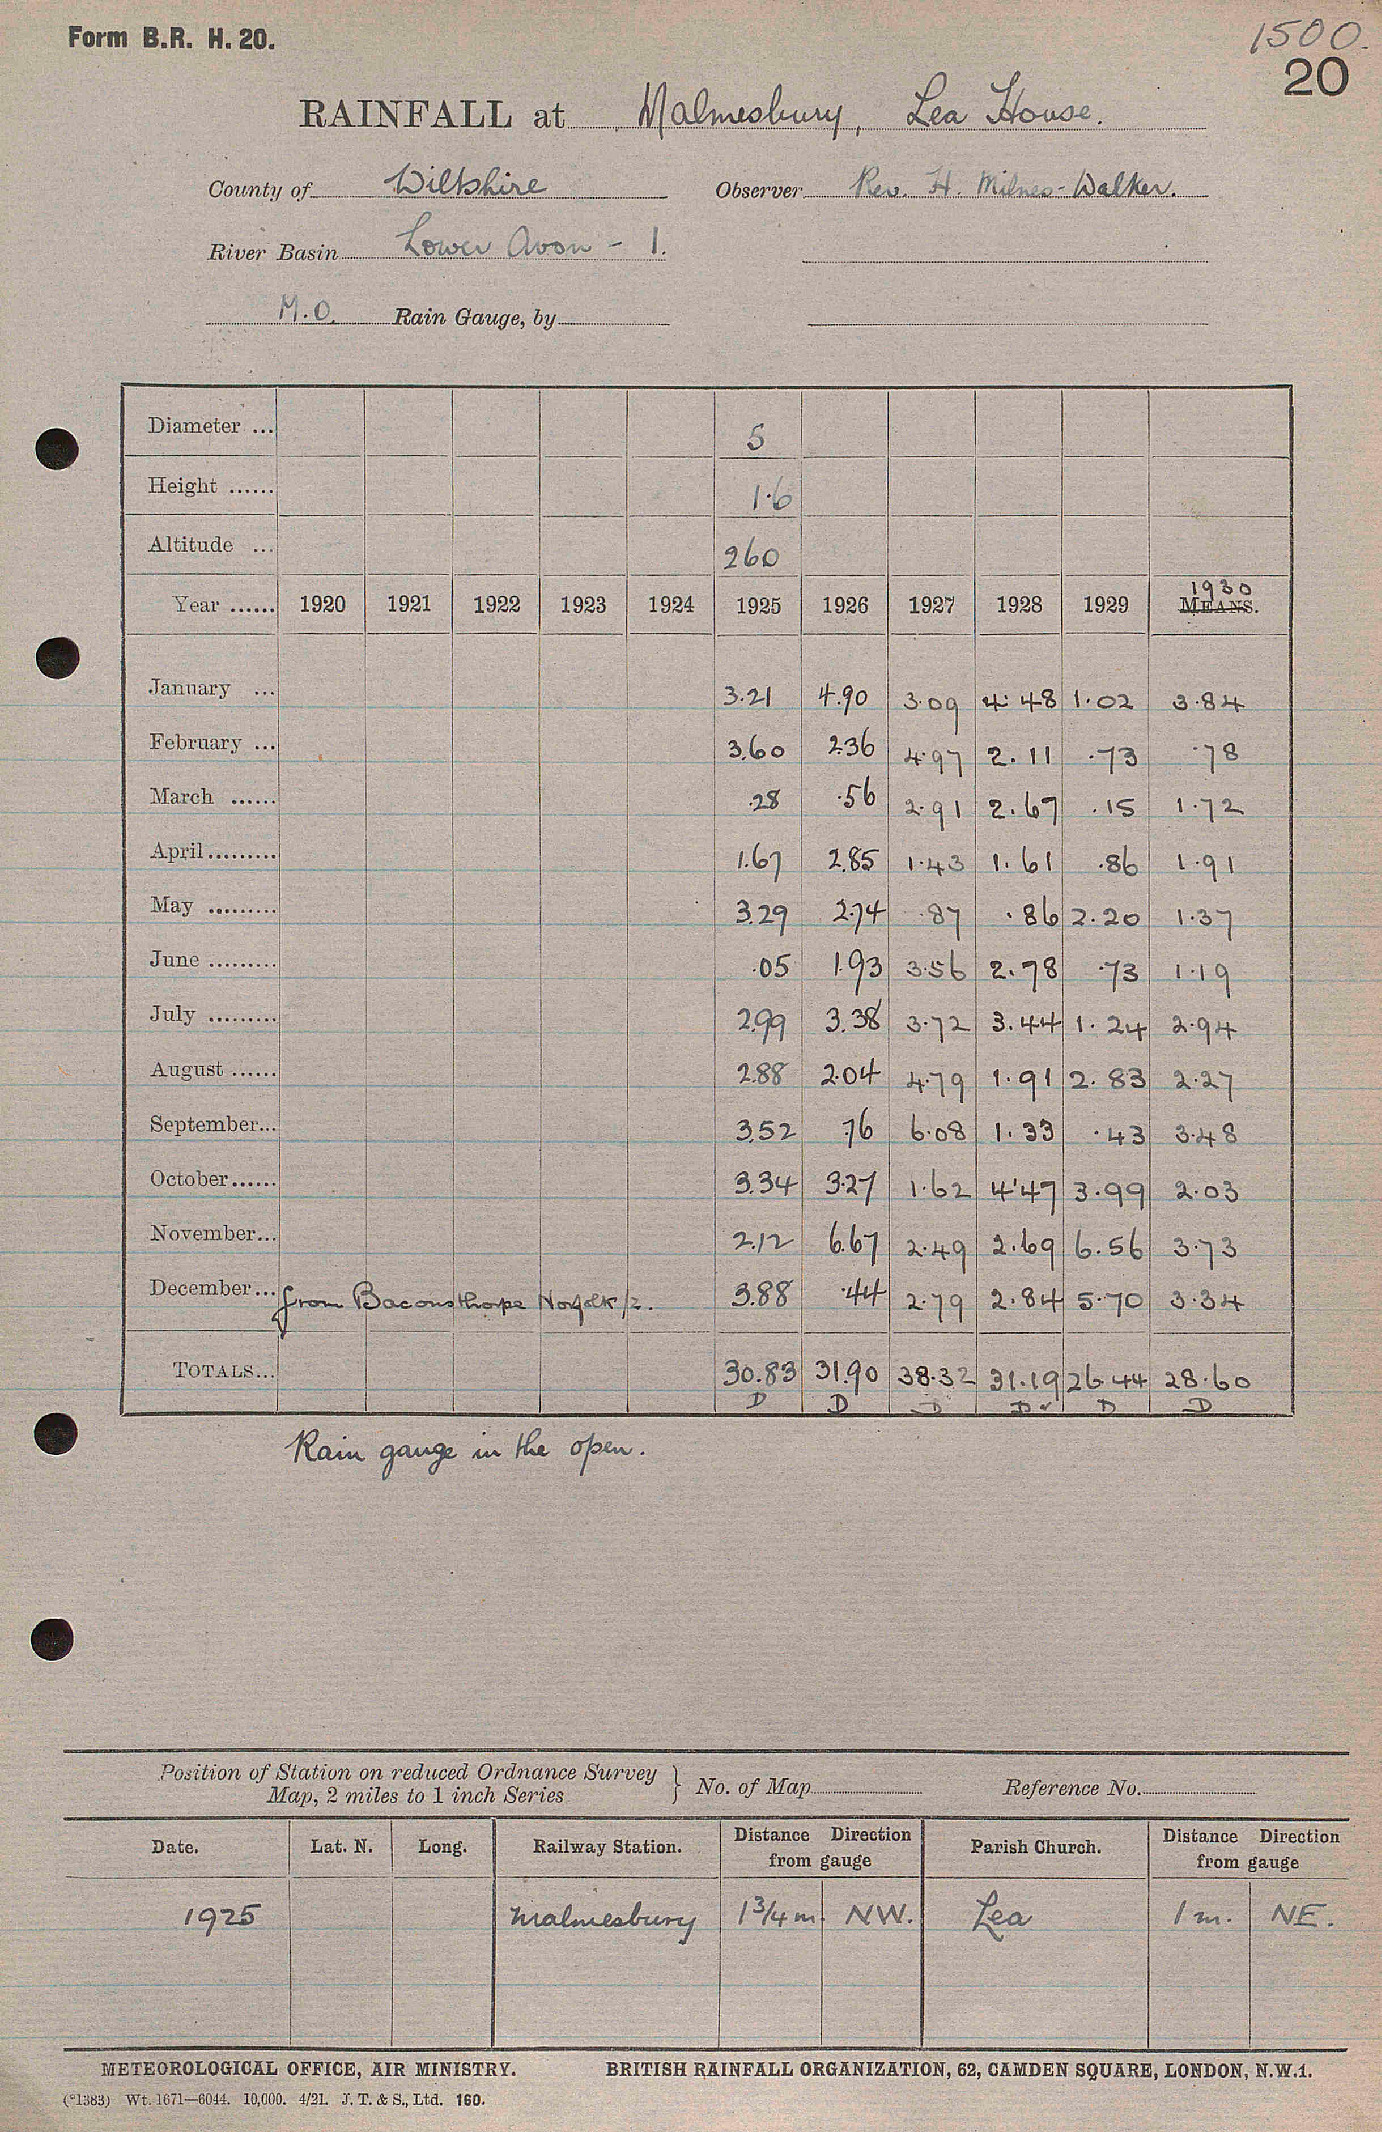 Form B.R. H. 20.
1500.
20
RAINFALL at Malmesbury, Lea House.
County of Wiltshire Observer Rev. H. Milnes-Walker.
River Basin Lower Avon - 1.
M.O. Rain Gauge, by
Diameter ... 5
Height ...... 1.6
Altitude ... 260
1930
Year ...... 1920 1921 1922 1923 1924 1925 1926 1927 1928 1929 MEANS.
January ... 3.21 4.90 3.09 4.48 1.02 3.84
February ... 3.60 2.36 4.97 2.11 .73 .78
March ...... .28 .56 2.91 2.67 .15 1.72
April......... 1.67 2.85 1.43 1.61 .86 1.91
May ......... 3.29 2.74 .87 .86 2.20 1.37
June ......... .05 1.93 3.56 2.78 .73 1.19
July ......... 2.99 3.38 3.72 3.44 1.24 2.94
August ...... 2.88 2.04 4.79 1.91 2.83 2.27
September... 3.52 .76 6.08 1.33 .43 3.48
October...... 3.34 3.27 1.62 4.47 3.99 2.03
November... 2.12 6.67 2.49 2.69 6.56 3.73
December... from Baconsthorpe Norfolk /2. 3.88 .44 2.79 2.84 5.70 3.34
TOTALS... 30.83 31.90 38.32 31.19 26.44 28.60
D D D D ✓ D D
Rain gauge in the open.
Position of Station on reduced Ordnance Survey
Map, 2 miles to 1 inch Series } No. of Map Reference No.
Date. Lat. N. Long. Railway Station. Distance Direction from gauge Parish Church. Distance Direction from gauge
1925 Malmesbury 1 3/4 m. NW. Lea 1 m. NE.
METEOROLOGICAL OFFICE, AIR MINISTRY. BRITISH RAINFALL ORGANIZATION, 62, CAMDEN SQUARE, LONDON, N.W.1.
(*1383) Wt. 1671—6044. 10,000. 4/21. J. T. & S., Ltd. 160.